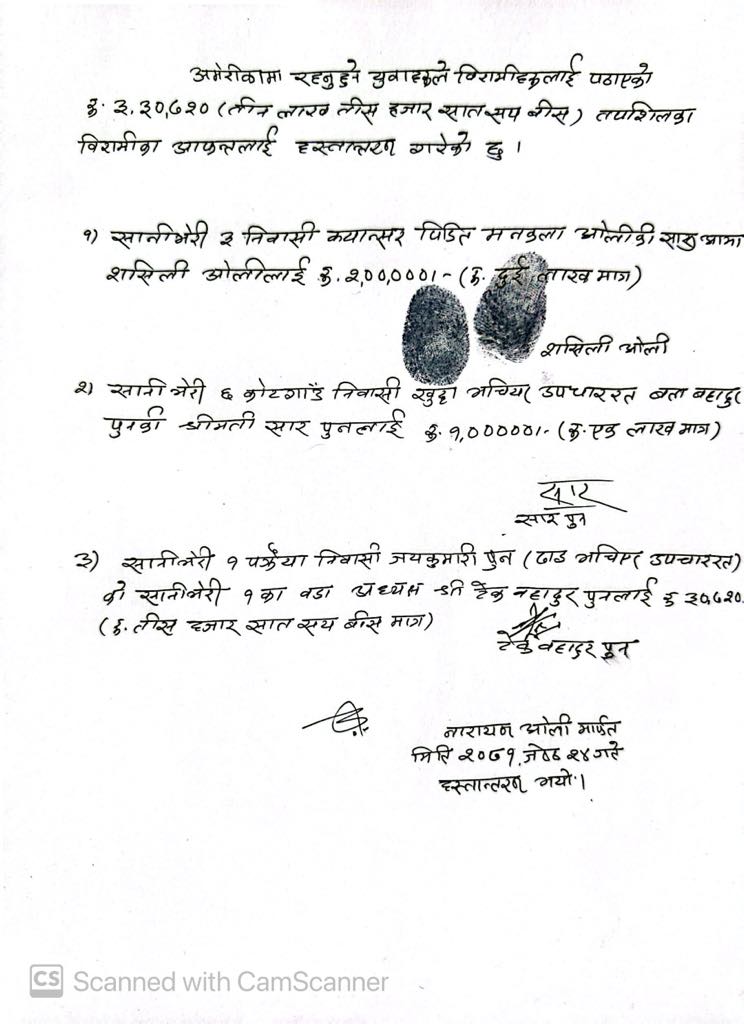 अमेरीकामा रहनुहुने युवाहरूले विरामीहरूलाई पठाएको
रु. ३,३०,७२० (तीन लाख तीस हजार सातसय बीस) तपशिलका
विरामीका आफन्तलाई हस्तान्तरण गरेको छु ।
१) सानीभेरी ३ निवासी क्यान्सर पिडित मनकला ओलीकी सासु आमा
शसिली ओलीलाई रु. २,००,०००।- (रु. दुई लाख मात्र)
शसिली ओली
२) सानीभेरी ६ कोटगाउँ निवासी खुट्टा भाँचिएर उपचाररत बल बहादुर
पुनकी श्रीमती सार पुनलाई रु. १,०००००।- (रु. एक लाख मात्र)
सार
सार पुन
३) सानीभेरी १ निवासी जयकुमारी पुन (ढाड भाँचिएर उपचाररत)
को सानीभेरी १ का वडा अध्यक्ष श्री टेक बहादुर पुनलाई रु ३०,७२०
(रु. तीस हजार सात सय बीस मात्र)
टेक बहादुर पुन
नारायन ओली मार्फत
मिति २०७१, जेठ २४ गते
हस्तान्तरण गर्यो ।
CS Scanned with CamScanner